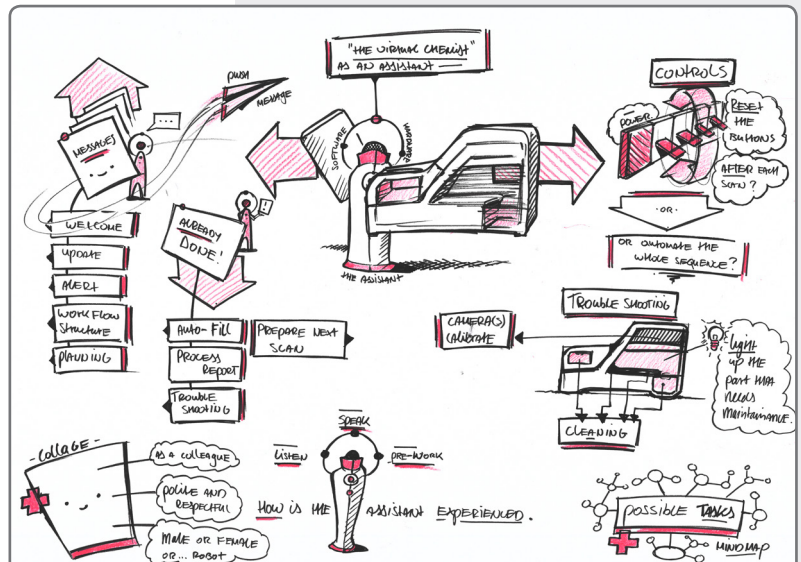 "THE VIRTUAL CHEMIST"
AS AN ASSISTANT
PUSH
MESSAGE
MESSAGES
WELCOME
UPDATE
ALERT
WORKFLOW
STRUCTURE
PLANNING
ALREADY
DONE!
AUTO-FILL
PREPARE NEXT
SCAN
PROCESS
REPORT
TROUBLE
SHOOTING
SOFTWARE
HARDWARE
THE ASSISTANT
CONTROLS
POWER
RESET
THE
BUTTONS
AFTER EACH
SCAN?
-OR-
OR AUTOMATE THE
WHOLE SEQUENCE?
TROUBLE SHOOTING
CAMERA(S)
CALIBRATE
light
UP THE
PART THAT
NEEDS
MAINTAINANCE.
CLEANING
-COLLAGE-
AS A COLLEAGUE
POLITE AND
RESPECTFUL
MALE OR FEMALE
OR... ROBOT
SPEAK
LISTEN
PRE-WORK
HOW IS THE ASSISTANT EXPERIENCED.
POSSIBLE TASKS
MINDMAP